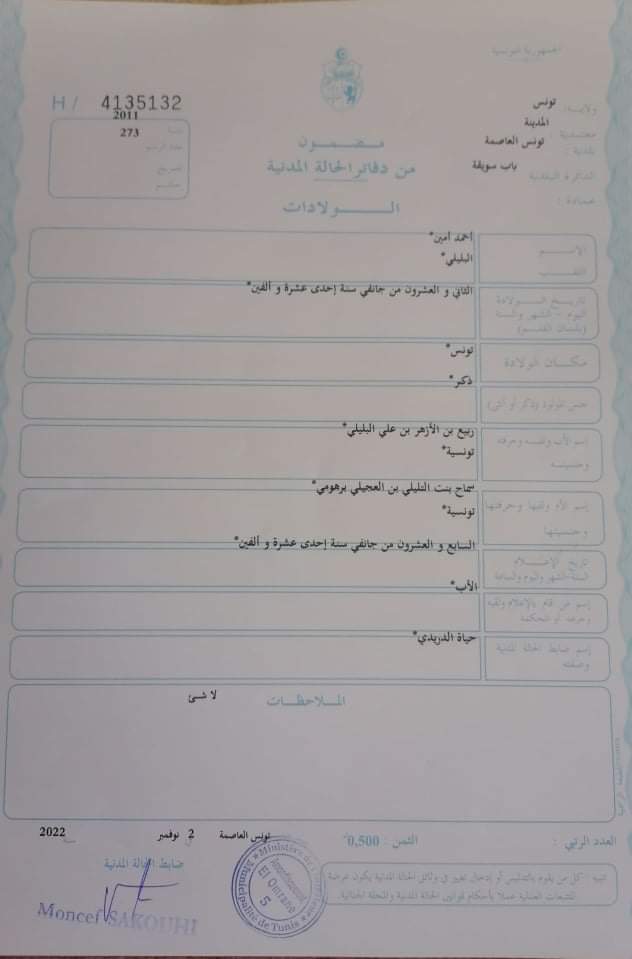 الجمهورية التونسية
ولاية : تونس
معتمدية : المدينة
بلدية : تونس العاصمة
الدائرة البلدية باب سويقة
عمادة :
H / 4135132
سنة 2011
عدد الرسم 273
مضمون
من دفاتر الحالة المدنية
الولادات
الاسم أحمد أمين*
اللقب البليلي*
تاريخ الولادة الثاني و العشرون من جانفي سنة إحدى عشرة و ألفين*
اليوم - الشهر والسنة
(بلسان القلم)
مكان الولادة تونس*
جنس المولود (ذكر أو أنثى) ذكر*
إسم الأب ولقبه وحرفته ربيع بن الأزهر بن علي البليلي*
وجنسيته تونسية*
إسم الأم ولقبها وحرفتها سماح بنت التليلي بن العجيلي برهومي*
وجنسيتها تونسية*
تاريخ الإعلام السابع و العشرون من جانفي سنة إحدى عشرة و ألفين*
السنة-الشهر واليوم والساعة
إسم من قام بالإعلام ولقبه الأب*
وحرفته أو المحكمة
إسم ضابط الحالة المدنية حياة الدريدي*
وصفته
الملاحظات
لا شئ
العدد الرتبي :
الثمن : 0,500
تونس العاصمة 2 نوفمبر 2022
ضابط الحالة المدنية
Moncef SAKOUHI
Municipalité de Tunis
Arrondissement
El Omrane
5
تنبيه - كل من يقوم بالتدليس أو إدخال تغيير في وثائق الحالة المدنية يكون عرضة
للتتبعات العدلية عملا بأحكام قوانين الحالة المدنية والمجلة الجنائية.